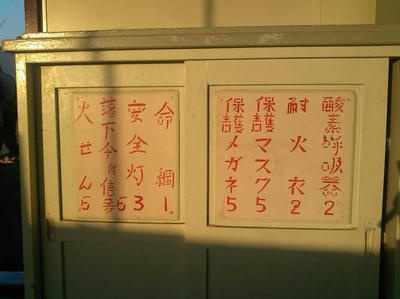 酸素呼吸器2
耐火衣2
保護マスク5
保護メガネ5
命綱1
安全灯3
落下仐付信号6
火せん6